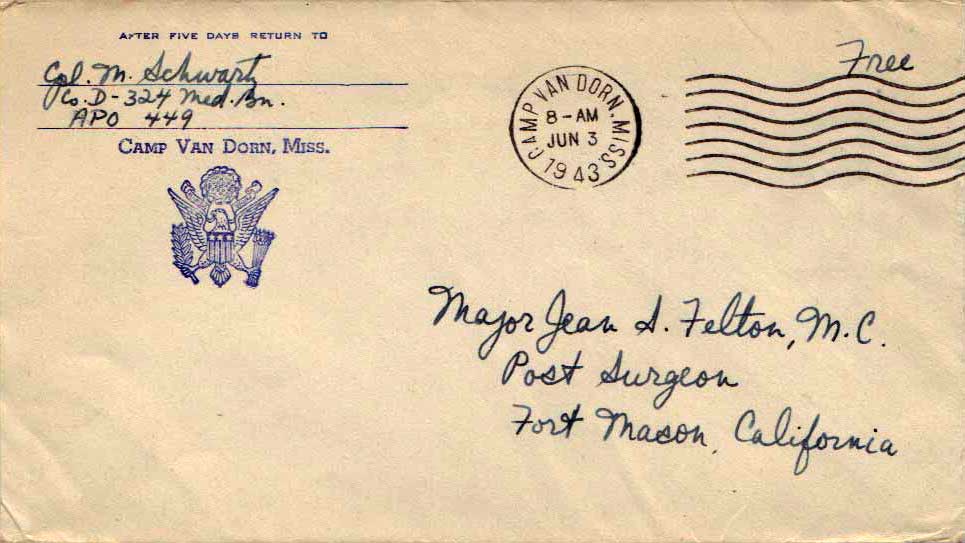 AFTER FIVE DAYS RETURN TO
Cpl. M. Schwartz
Co. D - 324 Med. Bn.
APO 449
CAMP VAN DORN, MISS.
CAMP VAN DORN, MISS.
8 - AM
JUN 3
1943
Free
Major Jean S. Felton, M.C.
Post Surgeon
Fort Mason, California